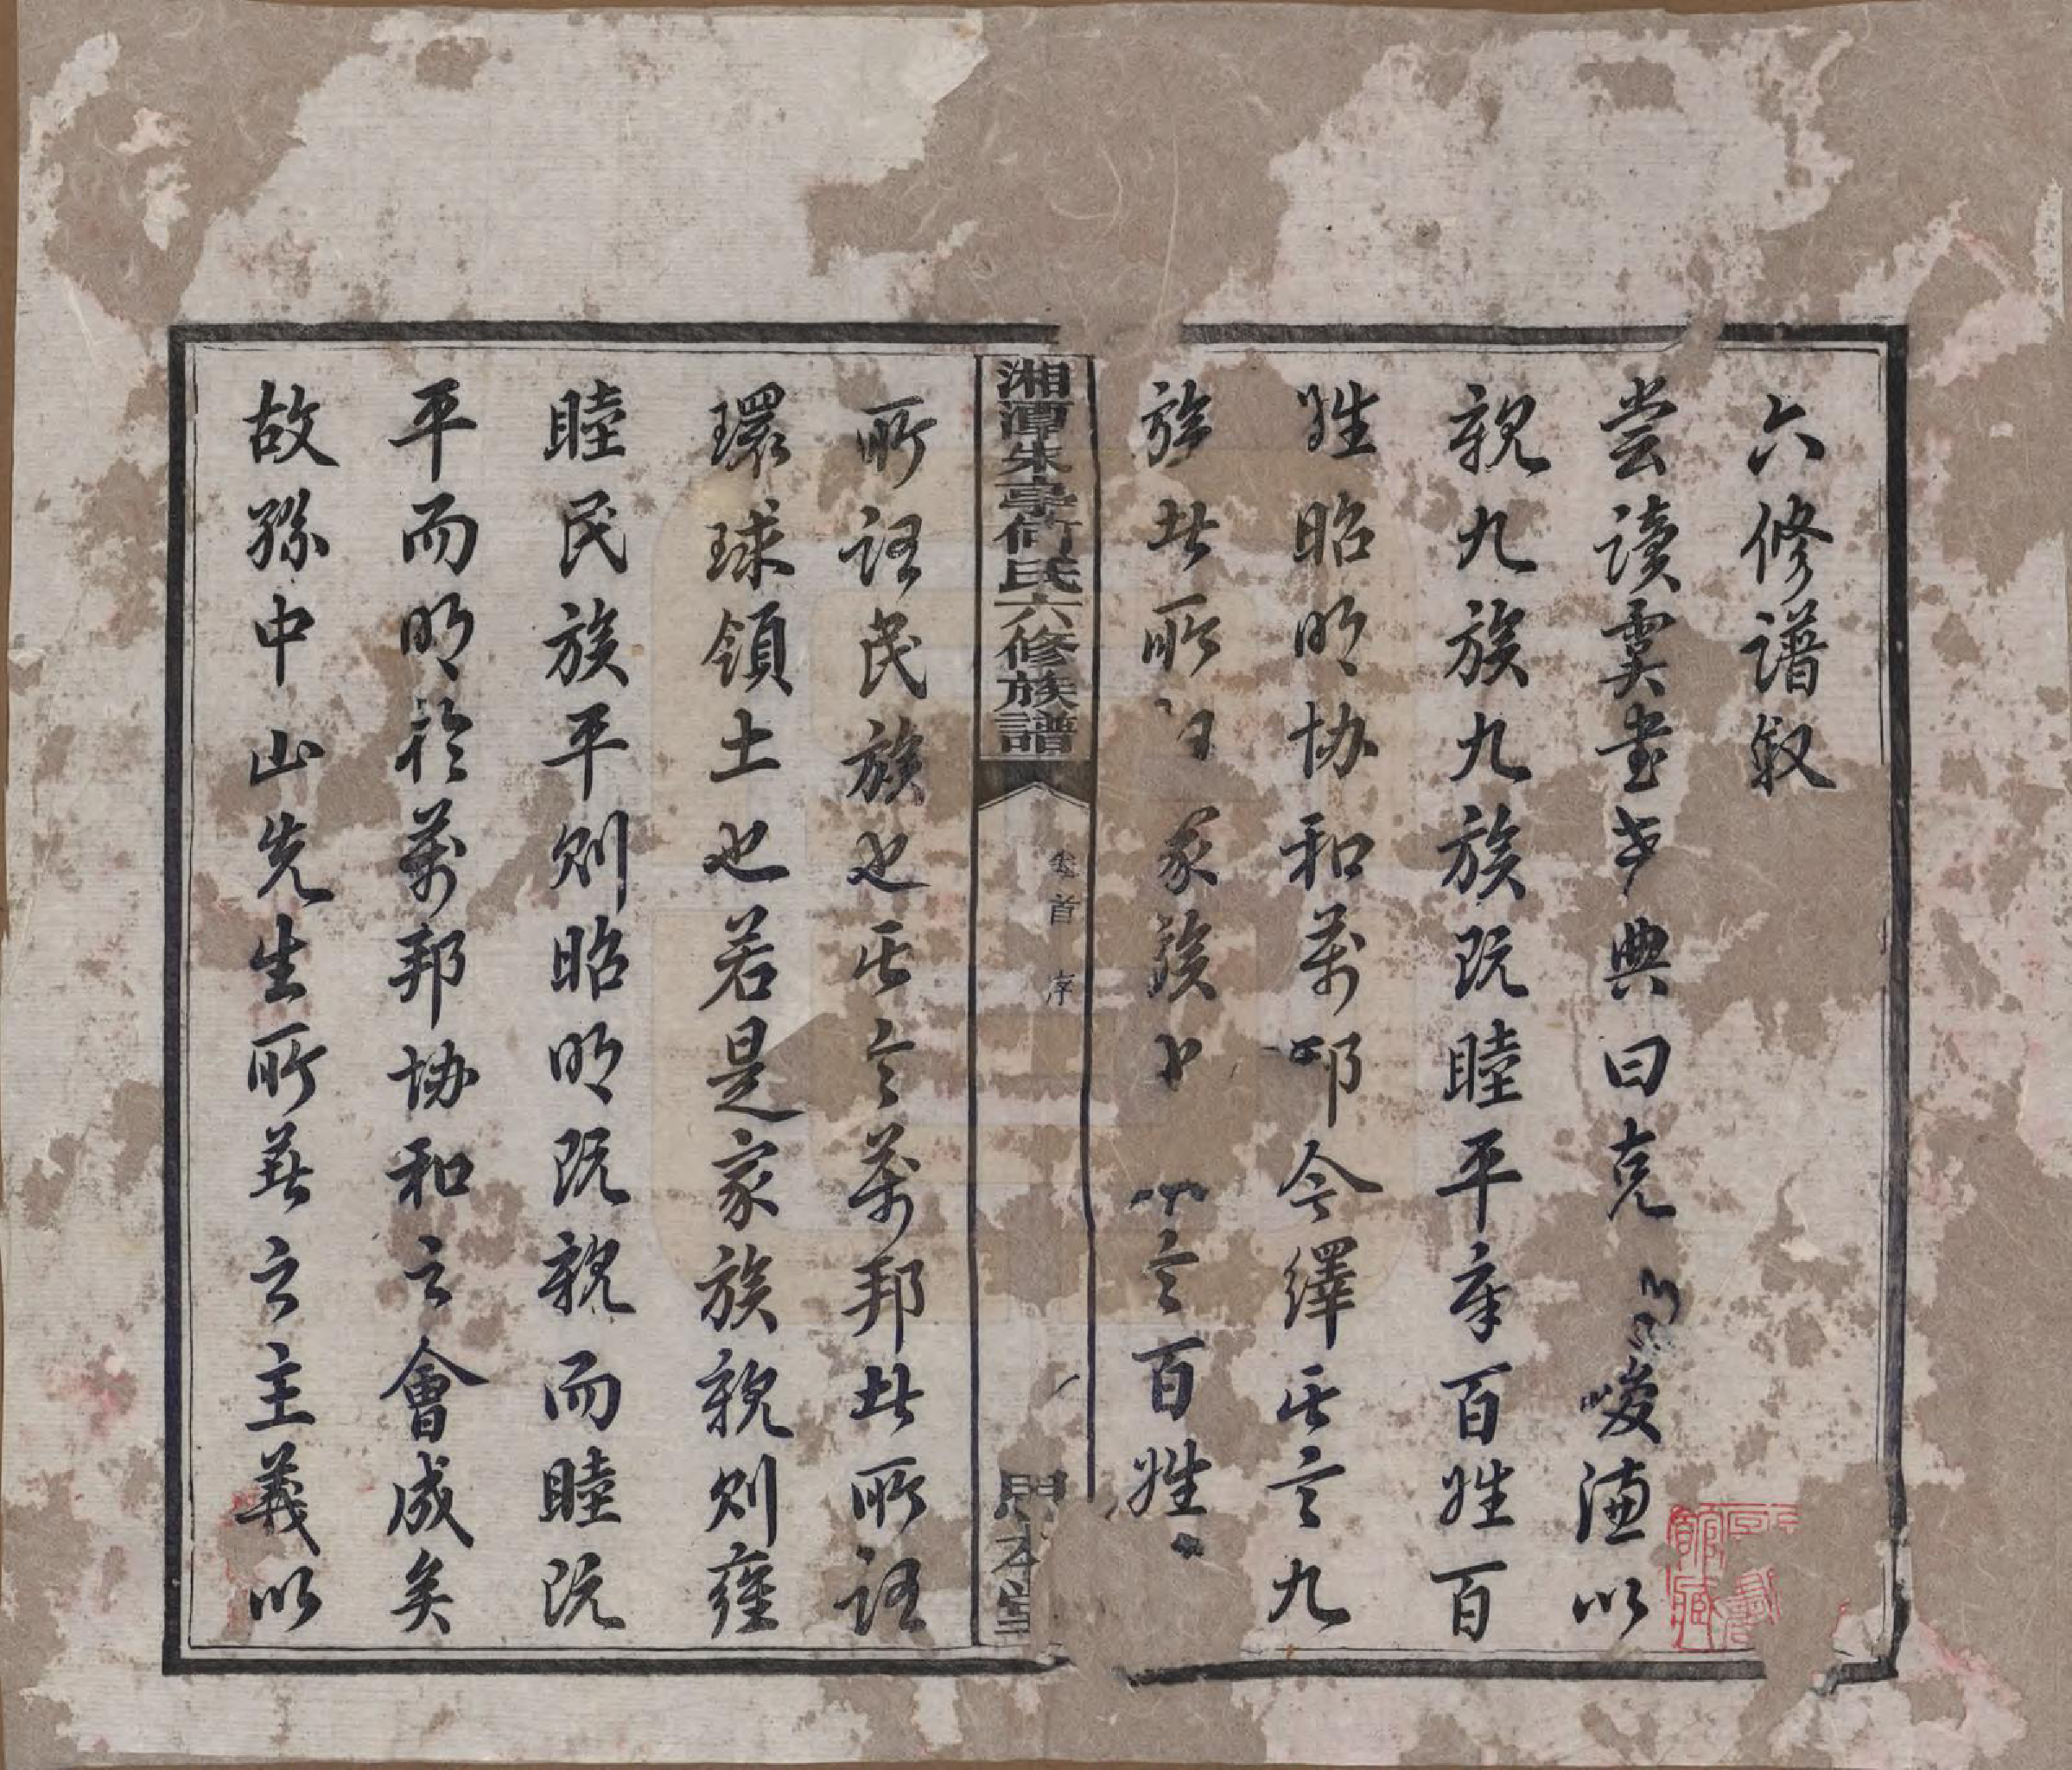 六修譜敘
嘗讀虞書典曰克峻德以
親九族九族既睦平章百姓百
姓昭明協和萬邦今繹其言九
族此所家族也言百姓
湘潭朱亭何氏六修族譜
卷首 序
一
本堂
所謂民族也其言萬邦此所謂
環球領土也若是家族親則雍
睦民族平則昭明既親而睦既
平而明於萬邦協和之會成矣
故孫中山先生所若之主義以
館藏